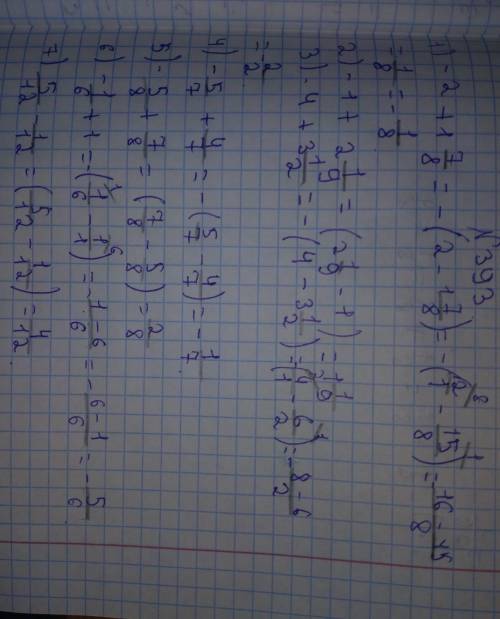 N 393
1) - 2 + 1 7/8 = - (2 - 1 7/8) = - (2/1 - 15/8) = 16 - 15/8
= 1/8 = - 1/8
2) - 1 + 2 1/9 = (2 1/9 - 1) = 1 1/9
3) - 4 + 3 1/2 = - (4 - 3 1/2) = (4/1 - 6/2) = - 8 - 6/2
= 2/2
4) - 5/7 + 4/7 = - (5/7 - 4/7) = - 1/7
5) - 5/8 + 7/8 = (7/8 - 5/8) = 2/8
6) - 1/6 + 1 = - (1/6 - 1/1) = - 1 - 6/6 = - 6 - 1/6 = - 5/6
7) 5/12 - 1/12 = (5/12 - 1/12) = 4/12